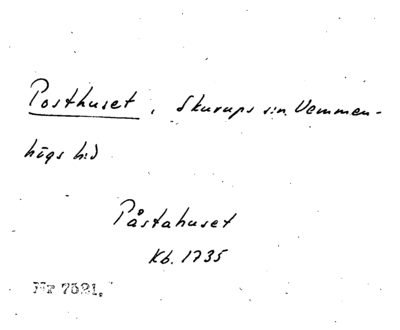 Posthuset, Skurups s:n. Vemmen-
högs h:d
Påstahuset
Kb. 1735
Nr 7521.